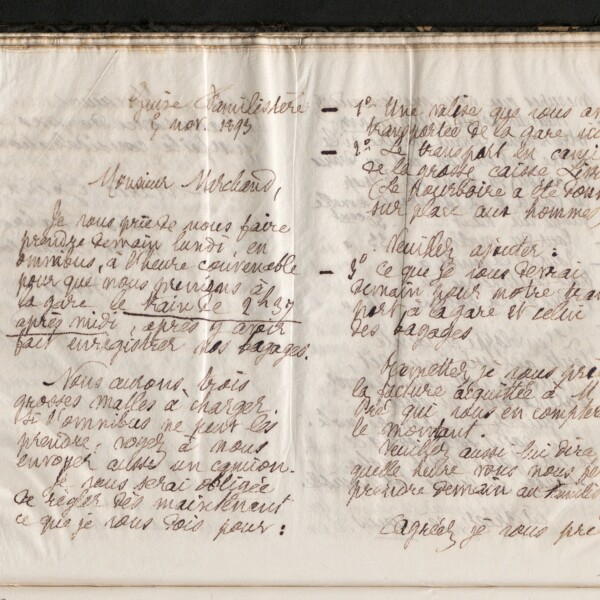 Guise Familistère
5 nov. 1893
Monsieur Marchand,
Je vous prie de nous faire
prendre demain lundi, en
omnibus, à l'heure convenable
pour que nous prenions à
la gare le train de 2h37
après midi, après y avoir
fait enregistrer nos bagages.
Nous aurons trois
grosses malles à charger.
Si l'omnibus ne peut les
prendre, voyez à nous
envoyer aussi un camion.
Je vous serai obligée
de régler dès maintenant
ce que je vous dois pour :
1° Une valise que vous av
transportée de la gare
2° Le transport en cami
de la grosse caisse
(Le pourboire a été don
sur place aux hommes
Veuillez ajouter :
3° Ce que je vous devrai
demain pour notre tran
port à la gare et celui
des bagages
Remettez je vous pri
la facture acquittée à M
qui vous en compter
le montant.
Veuillez aussi lui dire
quelle heure vous nous
prendre demain au Familis
Agréez, je vous pri